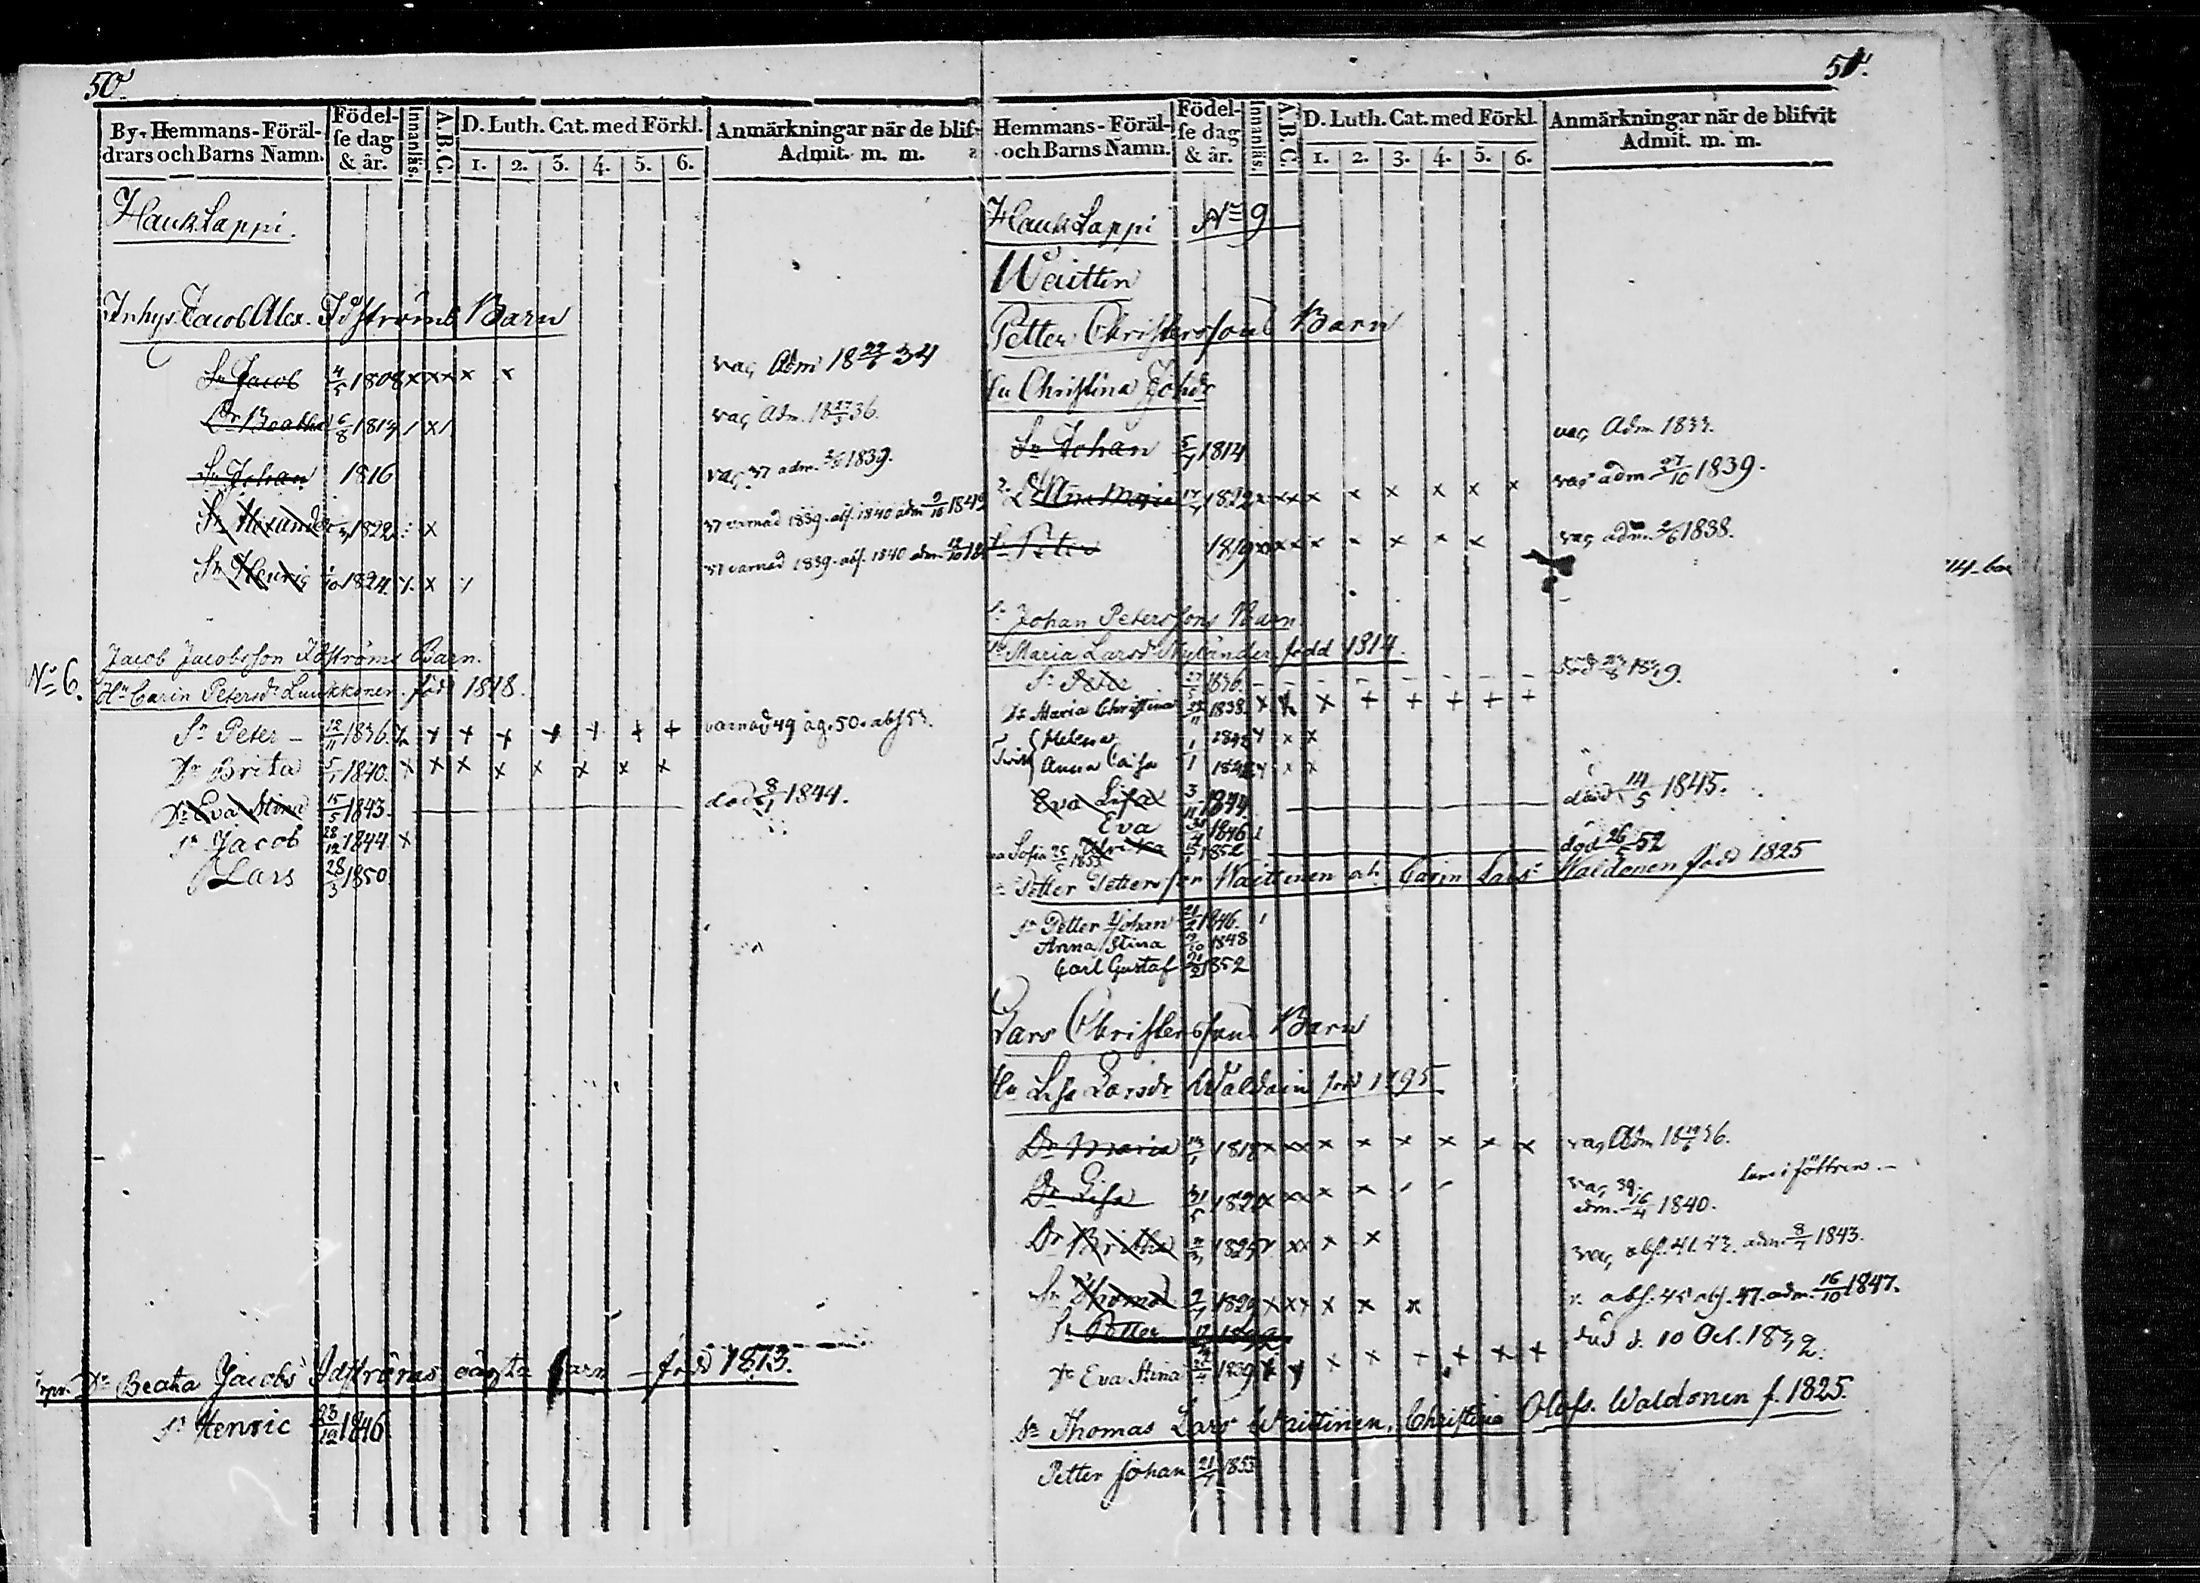 50.
By, Hemmans-Föräl-
drars och Barns Namn.
Födel-
se dag
& år.
Innanläs.
A.B.C.
D. Luth. Cat. med Förkl.
1. 2. 3. 4. 5. 6.
Anmärkningar när de blif-
Admit. m. m.
HaukLappi.
Inhys. Jacob Alex. Idströms Barn
Sn Jacob 4/5 1808 x x x x x vac Adm 18 22/6 34
Dr Beatha 6/8 1813 / x / vac Adm. 18 36.
Sn Johan 1816 vac 37 adm. 1839.
Sn Alexander 1822 x 37 varnad 1839. abs. 1840 adm 9/10 1842
Sn Henric 1824 x 37 varnad 1839. abs. 1840 adm.
Jacob Jacobsson Idströms Barn.
No 6.
Hu Carin Petersdr Luukkonen. född 1818.
Sn Peter 12/11 1836. x x x x x x x x varnad 49 ag. 50. abs 53.
Dr Brita 5/1 1840. x x x x x x x x
Dr Eva Stina 15/5 1843. död 8/1 1844.
Sn Jacob 28/12 1844. x
Lars 28/3 1850
Dr Beata Jacobs Idströms oägta barn – född 1813.
Sn Henric 23/12 1846
51.
Hemmans-Föräl-
och Barns Namn.
Födel-
se dag
& år.
Innanläs.
A.B.C.
D. Luth. Cat. med Förkl.
1. 2. 3. 4. 5. 6.
Anmärkningar när de blifvit
Admit. m. m.
HaukLappi No 9
Waitten
Petter Christerssons Barn
Hu Christina Johdr
Sn Johan 5/7 1814 vac Adm 1833.
Dr Anna Maria 17/7 1822 x x x x x x x x x vac adm. 27/10 1839.
Sn Peter 1819 x x x x x x x x vac adm. 1838.
Sn Johan Peterssons Barn
Hu Maria Larsdr Nyländer född 1814.
Sn Peter 27/5 1836. död 1839.
Dr Maria Christina 1838. x x x + + + + +
Tvill { Helena 1/1 1842 x x x
Anna Caisa 1/1 1842 x x x
Eva Lisa 3/11 1844. död 14/5 1845.
Eva 1846
Sofia 25/5 1853 Ulrika 1852 död 26/5 52
Sn Petter Pettersson Waittinen och Carin Larsdr Waldonen född 1825
Sn Petter Johan 21/2 1846.
Anna Stina 1848
Carl Gustaf 1852
Lars Christerssons Barn
Hu Lisa Larsdr Waldain född 1795
Dr Maria 1818 x x x x x x x x x vac Adm 18 36.
Dr Lisa 31/5 1820 x x x x x vac 39. adm. 16/4 1840.
Dr Britha 1825 x x x x vac abs. 41. 42. adm. 8/7 1843.
Sn Thomas 2/7 1829 x x x x x x abs. 45 abs. 47. adm. 16/10 1847.
Sn Petter 1832 död d. 10 Oct. 1832.
Dr Eva Stina 1839 x x x x + + x +
Sn Thomas Lars Waittinen, Christina Olofs. Waldonen f. 1825.
Petter Johan 21/7 1853